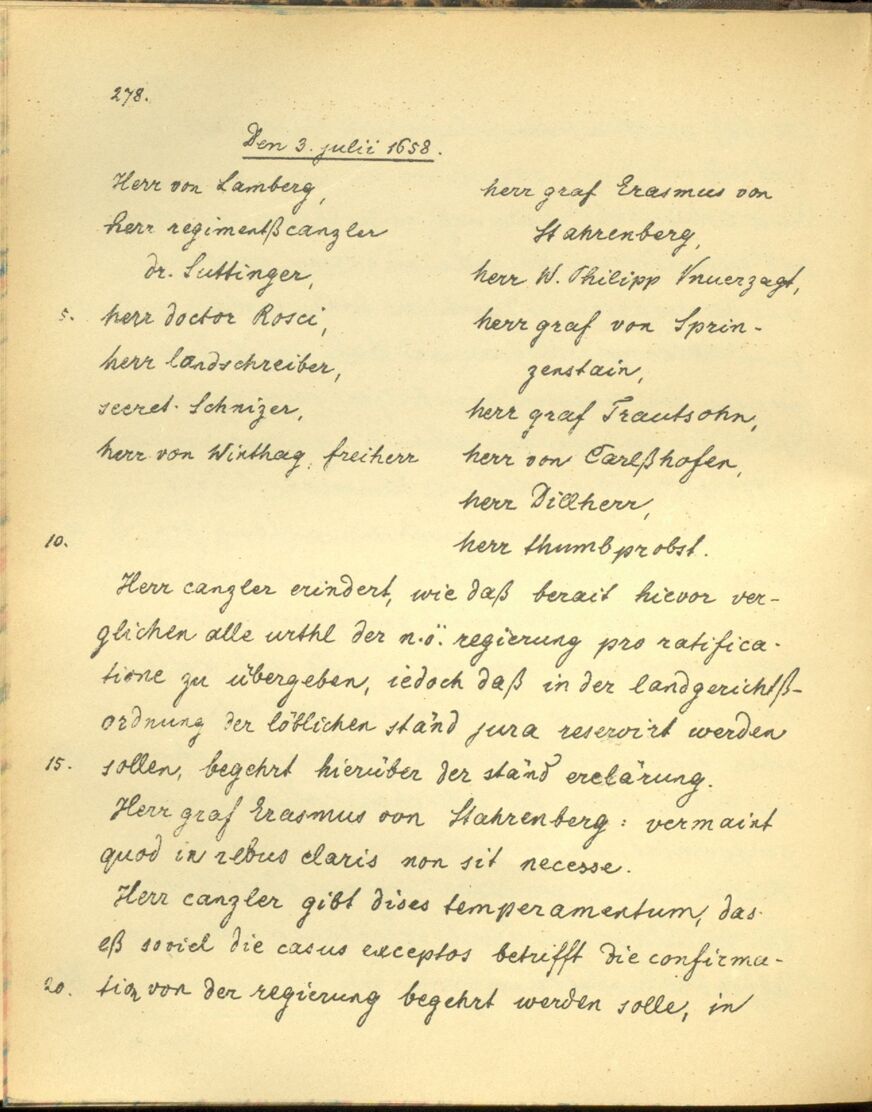 278.
Den 3. julii 1658.
Herr von Lamberg,
herr regimentßcanzler
dr. Suttinger,
5. herr doctor Rosci,
herr landschreiber,
secret. Schnizer,
herr von Winthag, freiherr
10.
herr graf Erasmus von
Stahrenberg,
herr W. Philipp Vnuerzagt,
herr graf von Sprin-
zenstain,
herr graf Trautsohn,
herr von Carlßhofen,
herr Dillherr,
herr thumbprobst.
Herr canzler erindert, wie daß berait hievor ver-
glichen alle urthl der n.ö. regierung pro ratifica-
tione zu übergeben, iedoch daß in der landgerichtß-
ordnung der löblichen ständ jura reservirt werden
15. sollen, begehrt hierüber der ständ erclärung.
Herr graf Erasmus von Stahrenberg: vermaint
quod in rebus claris non sit necesse.
Herr canzler gibt dises temperamentum, das
eß soviel die casus exceptos betrifft die confirma-
20. tion von der regierung begehrt werden solle, in